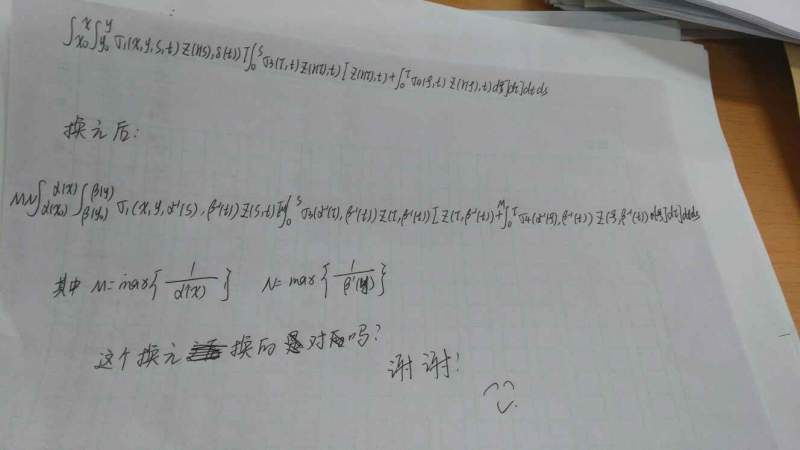 ∫_{x₀}^{x}∫_{y₀}^{y} σ₁(x,y,s,t) z(α(s),β(t)) [∫₀^s σ₃(τ,t) z(α(τ),t) [z(α(τ),t)+∫₀^τ σ₄(ξ,t) z(α(ξ),t)dξ]dτ]dtds
换元后:
MN∫_{α(x₀)}^{α(x)}∫_{β(y₀)}^{β(y)} σ₁(x,y,α⁻¹(s),β⁻¹(t)) z(s,t) [M∫₀^s σ₃(α⁻¹(τ),β⁻¹(t)) z(τ,β⁻¹(t)) [z(τ,β⁻¹(t))+M∫₀^τ σ₄(α⁻¹(ξ),β⁻¹(t)) z(ξ,β⁻¹(t))dξ]dτ]dtds
其中 M=max{1/α'(x)} N=max{1/β'(y)}
这个换元 换的 对吗?
谢谢!